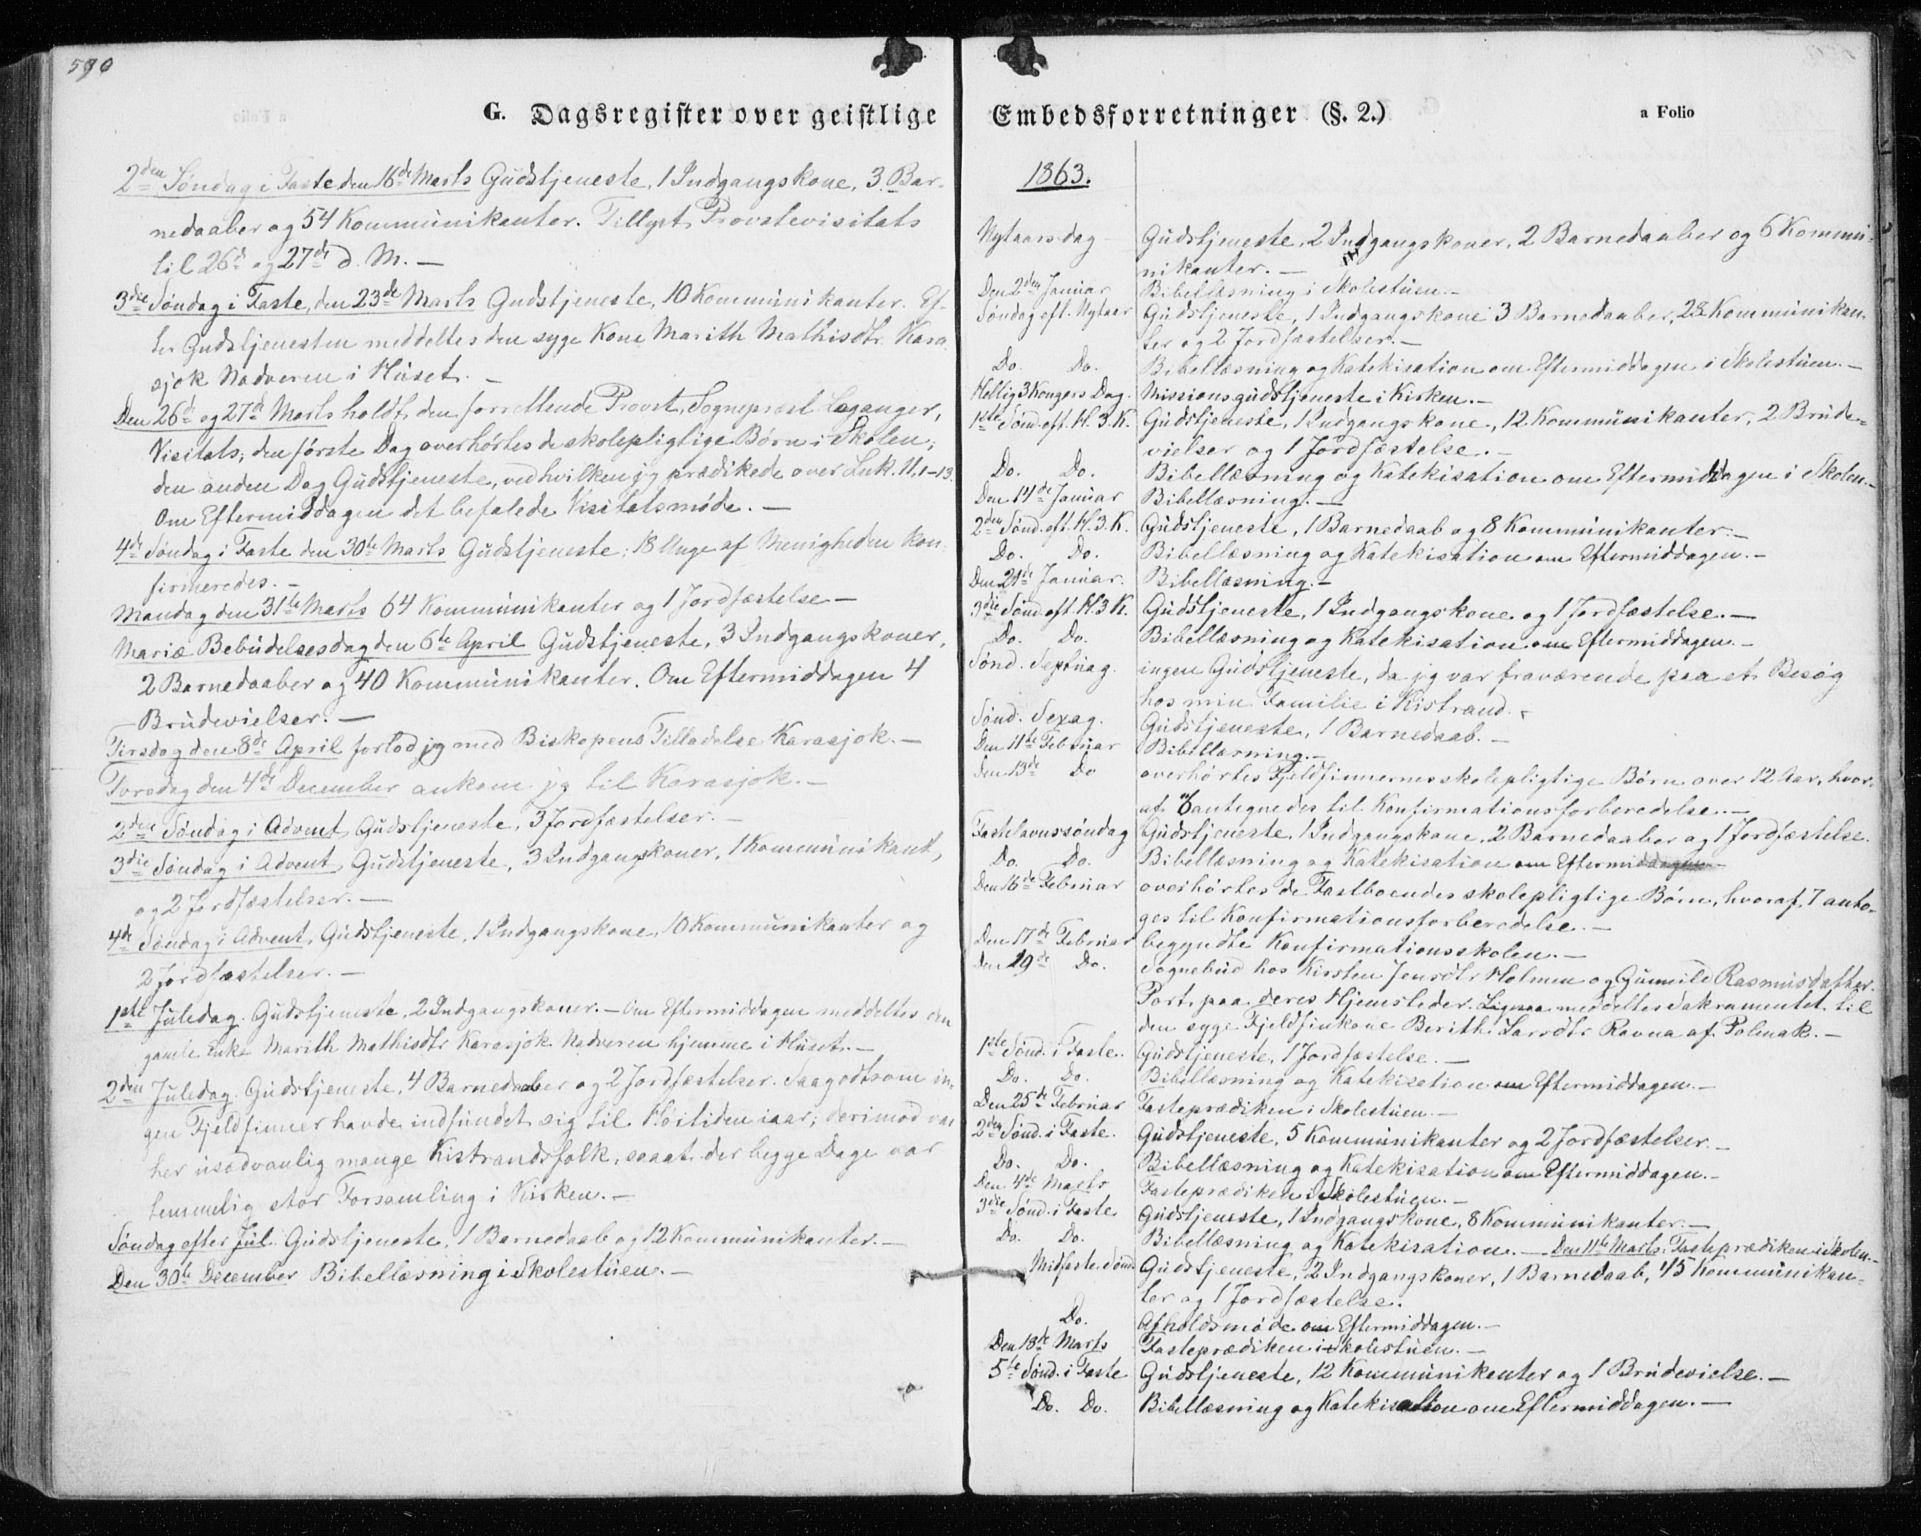 590
G. Dagsregister over geistlige
2den Søndag i Faste den 16de Marts Gudstjeneste, 1 Indgangskone, 3 Bar-
nedaaber og 54 Kommunikanter. Tillyst Provstevisitats
til 26de og 27de d. M. —
3die Søndag i Faste, den 23de Marts Gudstjeneste, 10 Kommunikanter. Ef-
ter Gudstjenesten meddeltes den syge Kone Marith Mathisdtr. Kara-
sjok Nadveren i Huset. —
Den 26de og 27de Marts holdt den forrettende Provst, Sognepræst Leganger,
Visitats; den første Dag overhørtes de skolepligtige Børn i Skolen;
den anden Dag Gudstjeneste, ved hvilken jeg prædikede over Luk. 11, 1-13.
Om Eftermiddagen det befalede Visitatsmøde. —
4de Søndag i Faste den 30te Marts Gudstjeneste; 18 Unge af Menigheden kon-
firmeredes. —
Mandag den 31te Marts 64 Kommunikanter og 1 Jordfæstelse —
Mariæ Bebudelsesdag den 6te April Gudstjeneste, 3 Indgangskoner,
2 Barnedaaber og 40 Kommunikanter. Om Eftermiddagen 4
Brudevielser. —
Tirsdag den 8de April forlod jeg med Biskopens Tilladelse Karasjok. —
Torsdag den 4de December ankom jeg til Karasjok. —
2den Søndag i Advent Gudstjeneste, 3 Jordfæstelser. —
3die Søndag i Advent, Gudstjeneste, 3 Indgangskoner, 1 Kommunikant,
og 2 Jordfæstelser. —
4de Søndag i Advent, Gudstjeneste, 1 Indgangskone, 10 Kommunikanter og
2 Jordfæstelser. —
1ste Juledag. Gudstjeneste, 2 Indgangskoner. — Om Eftermiddagen meddeltes den
gamle Enke Marith Mathisdtr Karasjok Nadveren hjemme i Huset. —
2den Juledag. Gudstjeneste, 4 Barnedaaber og 2 Jordfæstelser. Saagodtsom in-
gen Fjeldfinner havde indfundet sig til Høitiden iaar; derimod var
her usædvanlig mange Kistrandsfolk, saaat der begge Dage var
temmelig stor Forsamling i Kirken. —
Søndag efter Jul. Gudstjeneste, 1 Barnedaab og 12 Kommunikanter. —
Den 30te December Bibellæsning i Skolestuen. —
Embedsforretninger (§. 2.) a Folio
1863.
Nytaarsdag Gudstjeneste, 2 Indgangskoner, 2 Barnedaaber og 6 Kommu-
nikanter. —
Den 2den Januar Bibellæsning i Skolestuen. —
Søndag eft. Nytaar Gudstjeneste, 1 Indgangskone 3 Barnedaaber, 28 Kommunikan-
ter og 2 Jordfæstelser. —
Do. Do. Bibellæsning og Katekisation om Eftermiddagen i Skolestuen. —
Hellig 3 Kongers Dag. Missionsgudstjeneste i Kirken. —
1ste Sønd. eft. H. 3. K. Gudstjeneste, 1 Indgangskone, 12 Kommunikanter, 2 Brude-
vielser og 1 Jordfæstelse. —
Do. Do. Bibellæsning og Katekisation om Eftermiddagen i Skolen. —
Den 14de Januar Bibellæsning. —
2den Sønd. eft. H. 3. K. Gudstjeneste, 1 Barnedaab og 8 Kommunikanter. —
Do. Do. Bibellæsning og Katekisation om Eftermiddagen. —
Den 21de Januar. Bibellæsning. —
3die Sønd. eft. H. 3 K. Gudstjeneste, 1 Indgangskone og 1 Jordfæstelse. —
Do. Do. Bibellæsning og Katekisation om Eftermiddagen. —
Sønd. Septuag. ingen Gudstjeneste, da jeg var fraværende paa et Besøg
hos min Familie i Kistrand. —
Sønd. Sexag. Gudstjeneste, 1 Barnedaab. —
Den 11te Februar Bibellæsning. —
Den 13de Do overhørtes Fjeldfinnernes skolepligtige Børn over 12 Aar, hvor-
af 6 antegnedes til Konfirmationsforberedelse. —
Fastelavnssøndag Gudstjeneste, 1 Indgangskone, 2 Barnedaaber og 1 Jordfæstelse.
Do. Do. Bibellæsning og Katekisation om Eftermiddagen
Den 16de Februar overhørtes de Fastboendes skolepligtige Børn, hvoraf 7 anto-
ges til Konfirmationsforberedelse. —
Den 17de Februar begyndte Konfirmationsskolen. —
Den 19de Do. Sognebud hos Kirsten Jensdtr Holmen og Gunnild Rasmusdatter
Port, paa deres Hjemsteder. Ligesaa meddeltes Sakramentet til
den syge Fjeldfinkone Berith Larsdtr Ravna af Polmak. —
1ste Sønd. i Faste. Gudstjeneste, 1 Jordfæstelse. —
Do. Do. Bibellæsning og Katekisation om Eftermiddagen. —
Den 25de Februar Fasteprædiken i Skolestuen. —
2den Sønd. i Faste. Gudstjeneste, 5 Kommunikanter og 2 Jordfæstelser. —
Do. Do. Bibellæsning og Katekisation om Eftermiddagen. —
Den 4de Marts Fasteprædiken i Skolestuen. —
3die Sønd. i Faste Gudstjeneste, 1 Indgangskone, 8 Kommunikanter. —
Do. Do. Bibellæsning og Katekisation. — Den 11te Marts: Fasteprædiken i Skolen. —
Midfaste. Sønd Gudstjeneste, 2 Indgangskoner, 1 Barnedaab, 45 Kommunikan-
ter og 1 Jordfæstelse.
Do. Afholdsmøde om Eftermiddagen. —
Den 18de Marts Fasteprædiken i Skolestuen. —
5te Sønd. i Faste Gudstjeneste, 12 Kommunikanter og 1 Brudevielse. —
Do. Do. Bibellæsning og Katekisation om Eftermiddagen. —